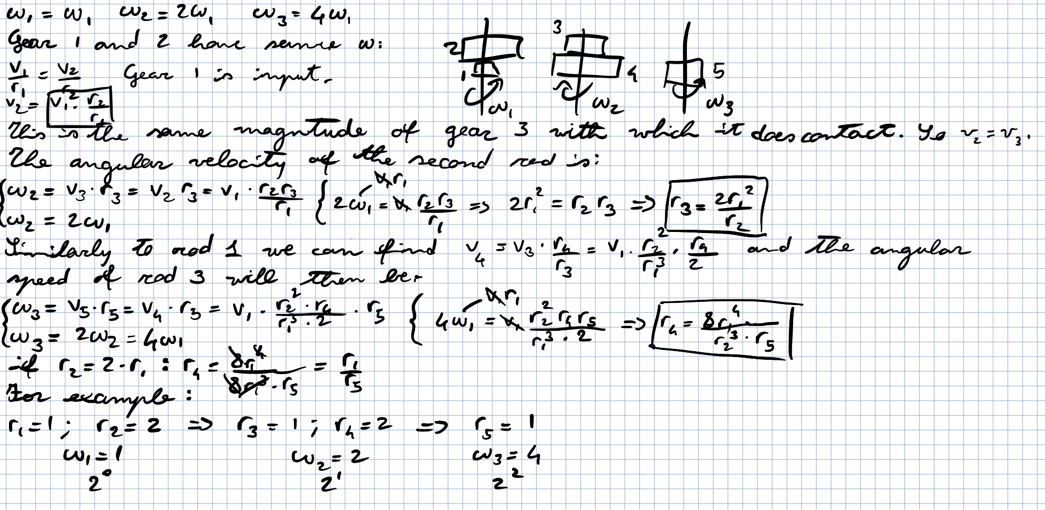 ω₁ = ω₁ ω₂ = 2ω₁ ω₃ = 4ω₁
Gear 1 and 2 have same ω:
v₁/r₁ = v₂/r₂ Gear 1 is input.
v₂ = v₁ · r₂/r₁
2 1 ω₁ 3 4 ω₂ 5 ω₃
This is the same magnitude of gear 3 with which it does contact. So v₂ = v₃.
The angular velocity of the second rod is:
{ω₂ = v₃ · r₃ = v₂ r₃ = v₁ · r₂r₃/r₁ {2ω₁ = v₁ r₂r₃/r₁ => 2r₁² = r₂ r₃ => r₃ = 2r₁²/r₂
ω₂ = 2ω₁
Similarly to rod 1 we can find v₄ = v₃ · r₄/r₃ = v₁ · r₂²/r₁³ · r₄/2 and the angular
speed of rod 3 will then be:
{ω₃ = v₅ · r₅ = v₄ · r₅ = v₁ · r₂² · r₄/r₁³ · 2 · r₅ {4ω₁ = v₁ r₂² r₄ r₅/r₁³ · 2 => r₄ = 8r₁⁴/r₂³ · r₅
ω₃ = 2ω₂ = 4ω₁
if r₂ = 2 · r₁ : r₄ = 8r₁⁴/8r₁³ · r₅ = r₁/r₅
For example:
r₁ = 1 ; r₂ = 2 => r₃ = 1 ; r₄ = 2 => r₅ = 1
ω₁ = 1 ω₂ = 2 ω₃ = 4
2⁰ 2¹ 2²